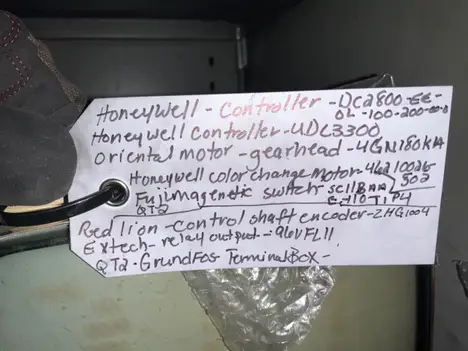 Honeywell - Controller - DC2800-EE-
0L-100-200-00-0
Honeywell Controller - UDC3300
Oriental motor - gearhead - 4GN180KA
Honeywell color change motor - 46210026-
502
Fuji magnetic switch
QT2
Red lion - control shaft encoder - ZHG1004
Extech - relay output - 96VFL11
QT2 - Grundfos Terminal Box -